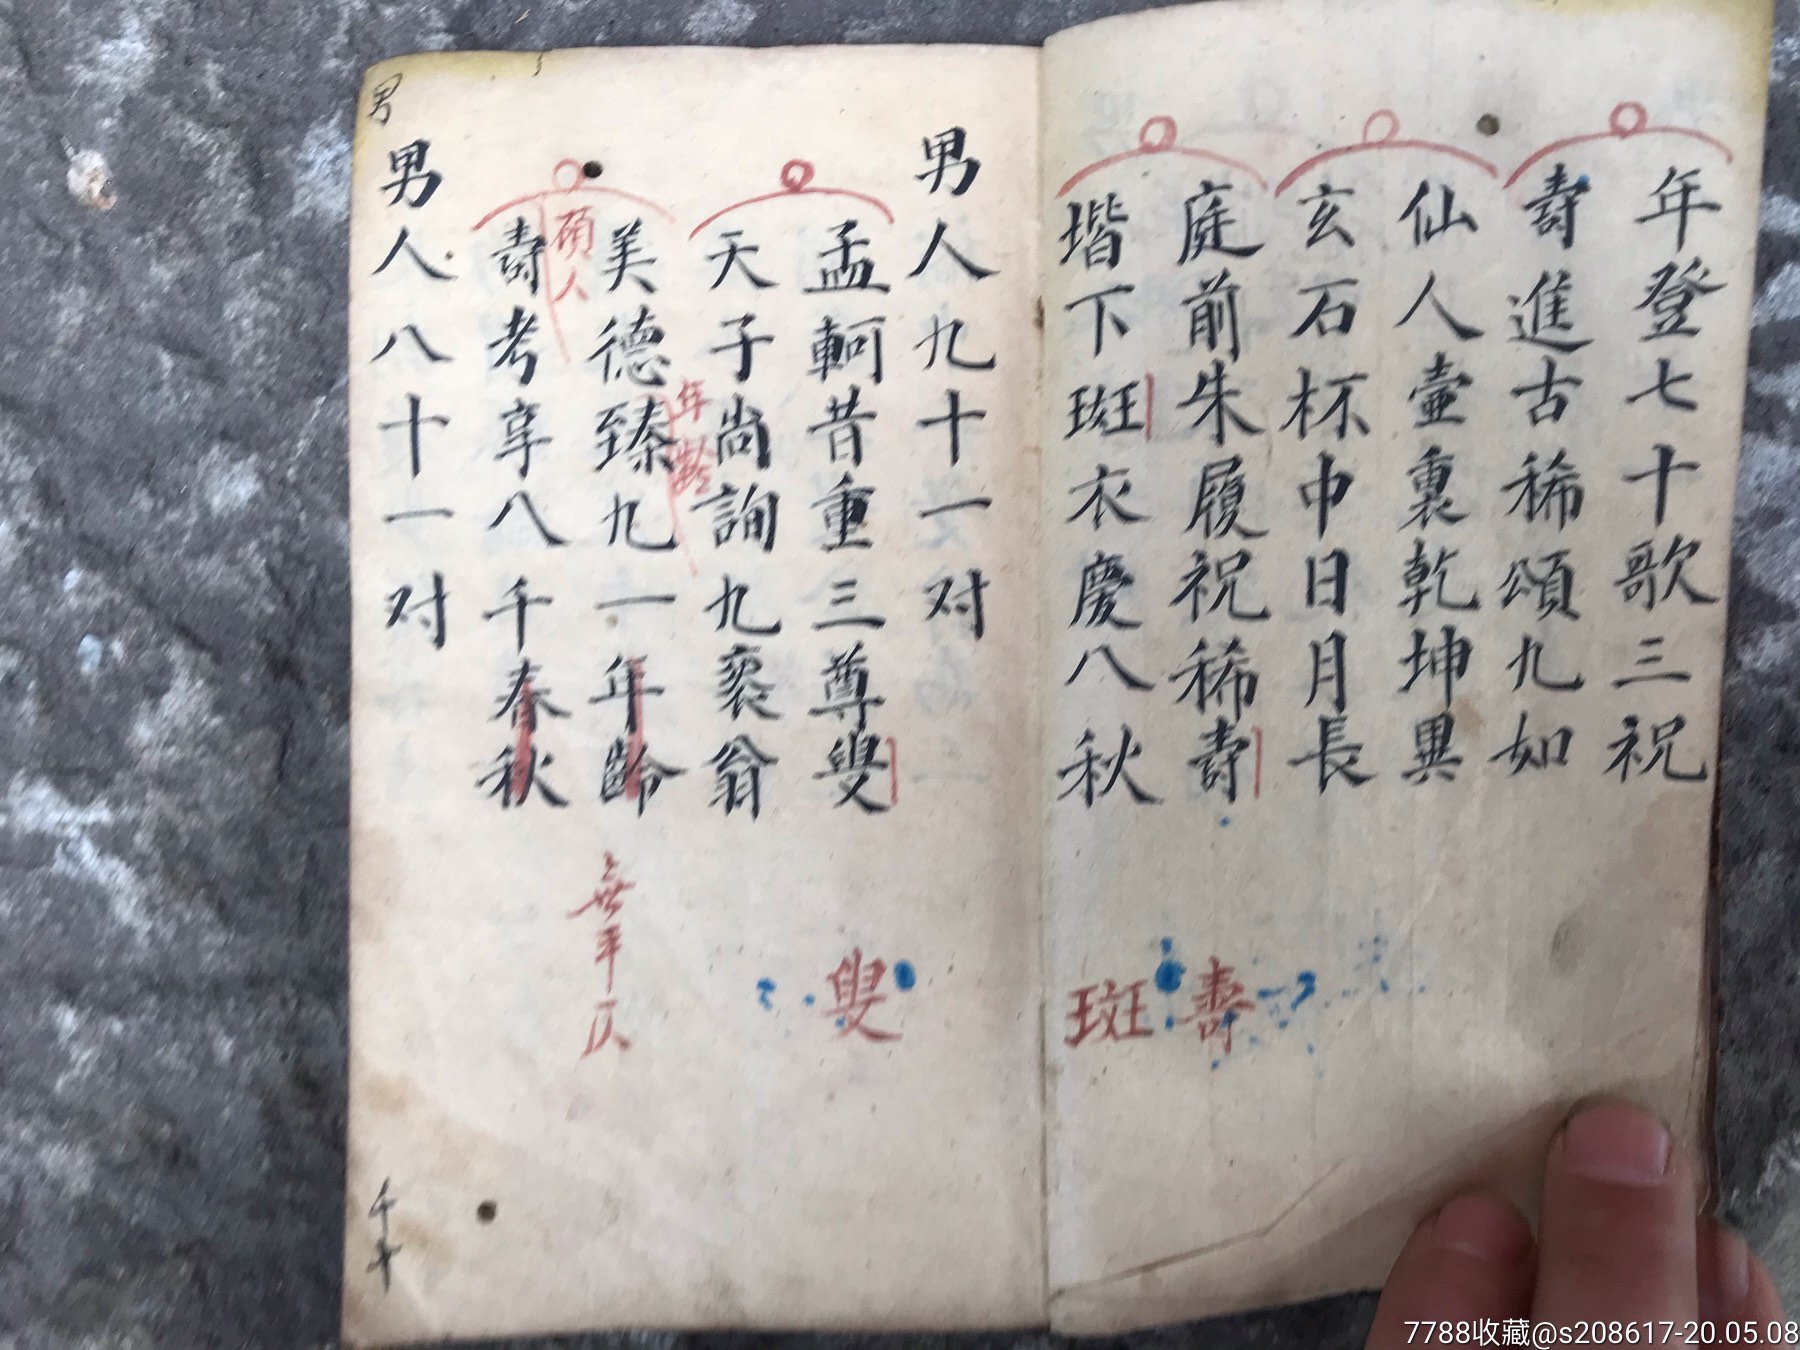 年登七十歌三祝
壽進古稀頌九如
仙人壷裏乾坤異
玄石杯中日月長
庭前朱履祝稀壽
堦下斑衣慶八秋
壽
斑
男人九十一对
孟軻昔重三尊叟
天子尚詢九裘翁
年齡
美德臻九一年齡
碩人
壽考享八千春秋
叟
男人八十一对
男
千十
7788收藏@s208617-20.05.08